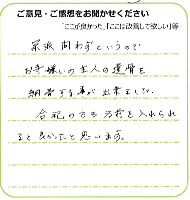 ご意見・ご感想をお聞かせください
「ここが良かった」「ここは改善して欲しい」等
宗派問わずというので
お手嫌いの主人の遺骨を
納骨する事が出来ました。
合祀の方も万初を入れられ
ると良かったと思います。